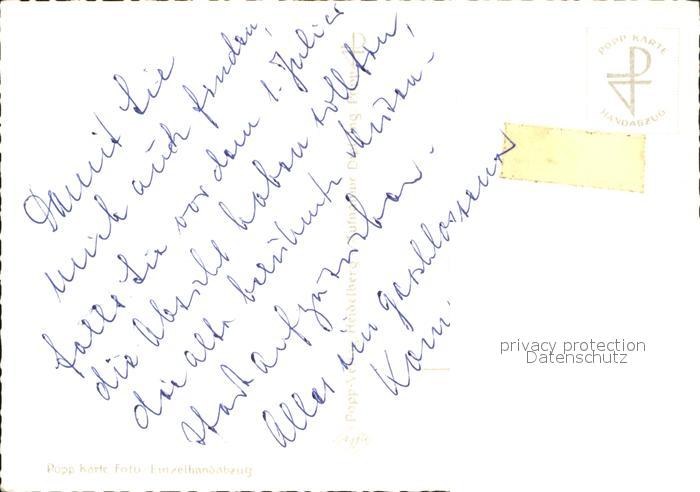 Damit Sie
mich auch finden,
falls Sie vor dem 1. Juli
die Absicht haben sollten,
die alte berühmte
Stadt aufzusuchen.
Alles in geschlossenem
POPP KARTE
HANDABZUG
Popp Karte Foto-Einzelhandabzug
Agfa
privacy protection
Datenschutz